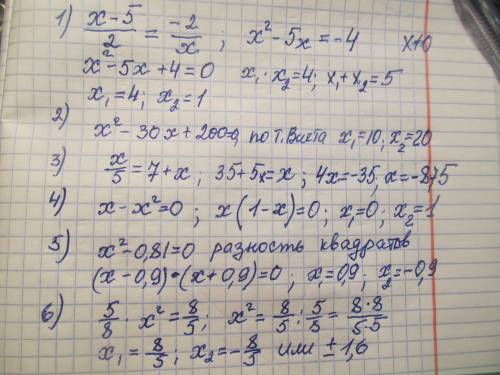 1) x-5/2 = -2/x ; x²-5x=-4 x≠0
x²-5x+4=0 x₁·x₂=4; x₁+x₂=5
x₁=4; x₂=1
2) x²-30x+200=0, по т. Виета x₁=10; x₂=20
3) x/5=7+x; 35+5x=x; 4x=-35, x=-8,75
4) x-x²=0; x(1-x)=0; x₁=0; x₂=1
5) x²-0,81=0 разность квадратов
(x-0,9)·(x+0,9)=0; x₁=0,9; x₂=-0,9
6) 5/8·x²=8/5; x²=8/5:5/8=8·8/5·5
x₁=8/5; x₂=-8/5 или ±1,6